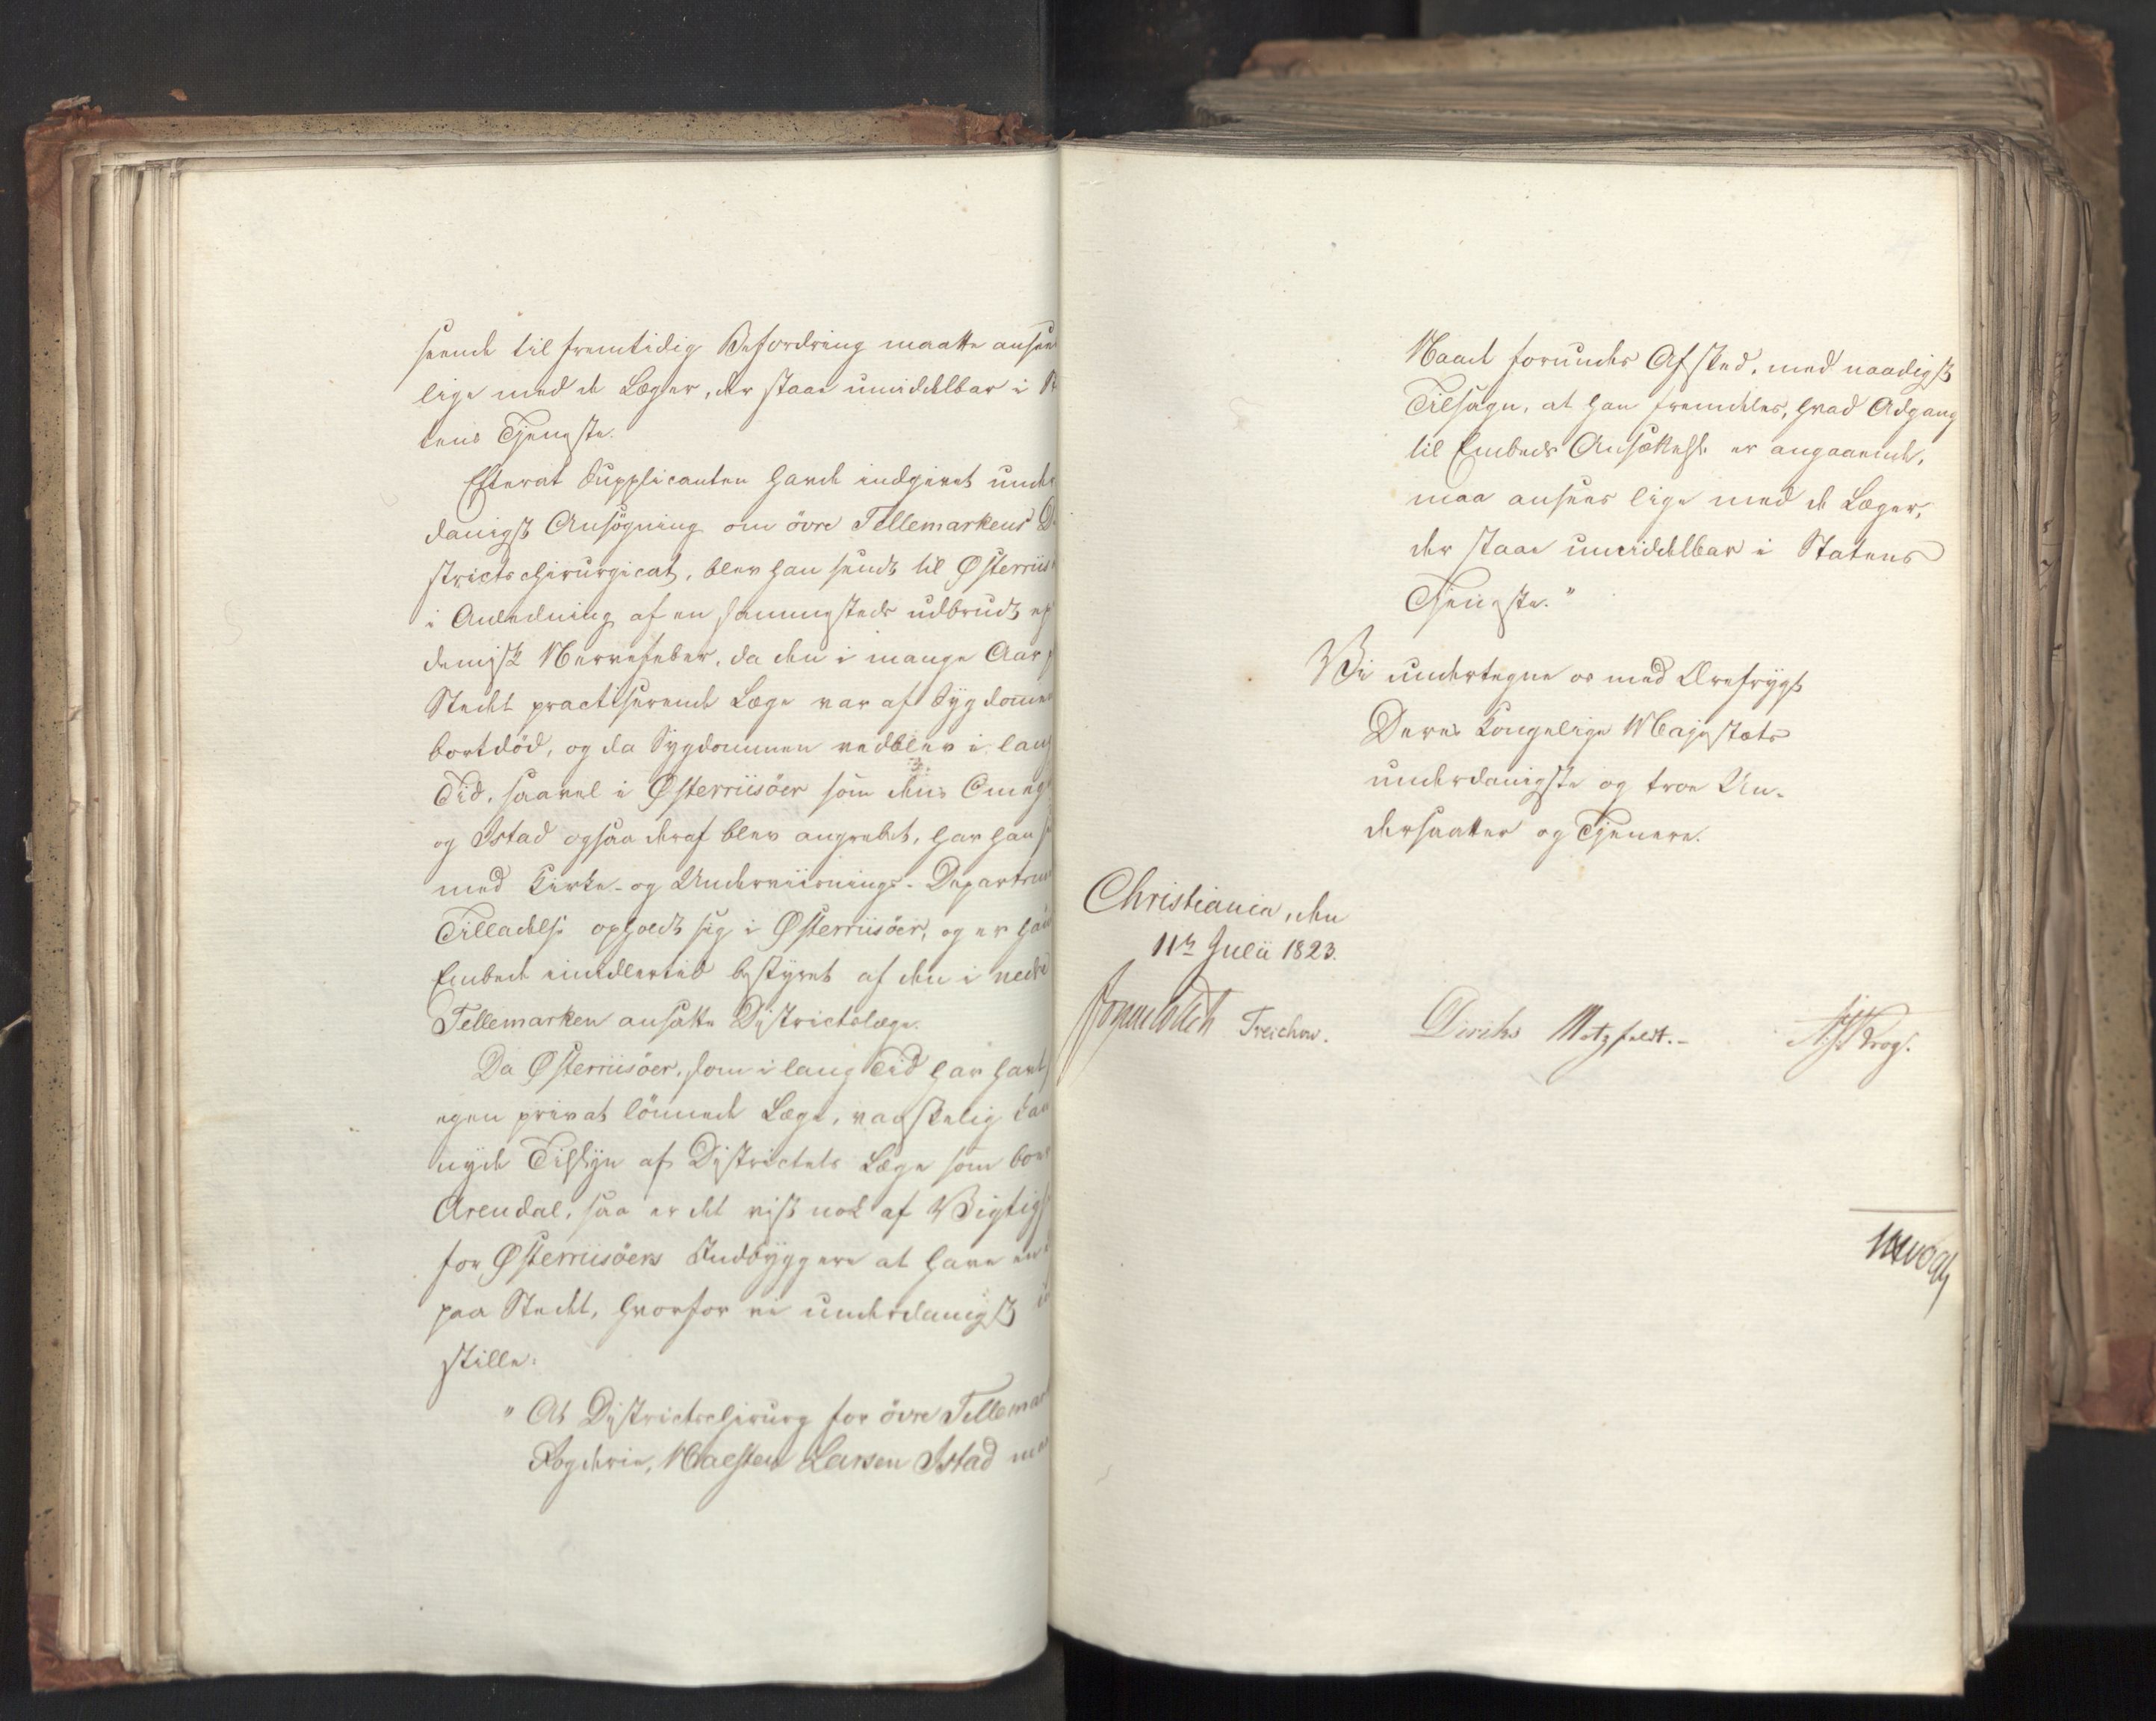 seende til fremtidig Befordring maatte ansees
lige med de Læger, der staae umiddelbar i
tens Tjeneste.
Efterat Supplicanten havde indgivet under
danigst Ansøgning om övre Tellemarkens Di
strictschirurgicat, blev han sendt til Østerriis
i Anledning af en sammesteds udbrudt epi
demisk Nervefeber, da den i mange Aar
Stedet practiserende Læge var af Sygdommen
bortdöd, og da Sygdommen vedblev i lang
Tid, saavel i Østerriisöer som dens Omegn
og Istad ogsaa deraf blev angrebet, har han
med Kirke- og Underviisnings-Departem
Tilladelse opholdt sig i Østerriisöer, og er hans
Embede imidlertid bestyret af den i nedre
Tellemarken ansatte Districtslæge.
Da Østerriisöer, som i lang Tid har havt
egen privat lönnede Læge, vanskelig kan
nyde Tilsyn af Districtets Læge som boer
Arendal, saa er det vist nok af Vigtighed
for Østerriisöers Indbyggere at have en
paa Stedet, hvorfor vi underdanigst ind
stille:
" At Districtschirurg for övre Tellemark
Fogderie, Halsten Larsen Istad maa
Naade forundes Afsked, med naadigst
Tilsagn, at han fremdeles, hvad Adgang
til Embeds Ansættelse er angaaende,
maa ansees lige med de Læger,
der staae umiddelbar i Statens
Tjeneste."
Vi undertegne os med Ærefrygt
Deres Kongelige Majestæts
underdanigste og troe Un-
dersaatter og Tjenere.
Christiania, den
11te Julii 1823.
Sommerhielm Treschow. Diriks Motzfeldt. Krog.